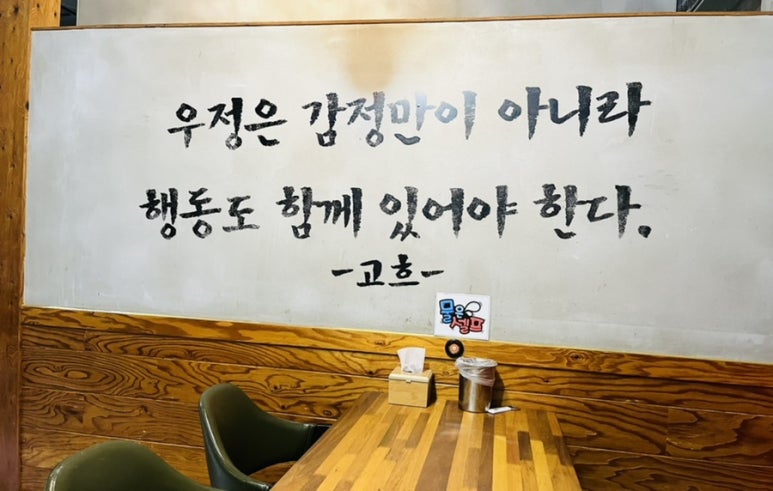 우정은 감정만이 아니라
행동도 함께 있어야 한다.
-고흐-
물은
셀프